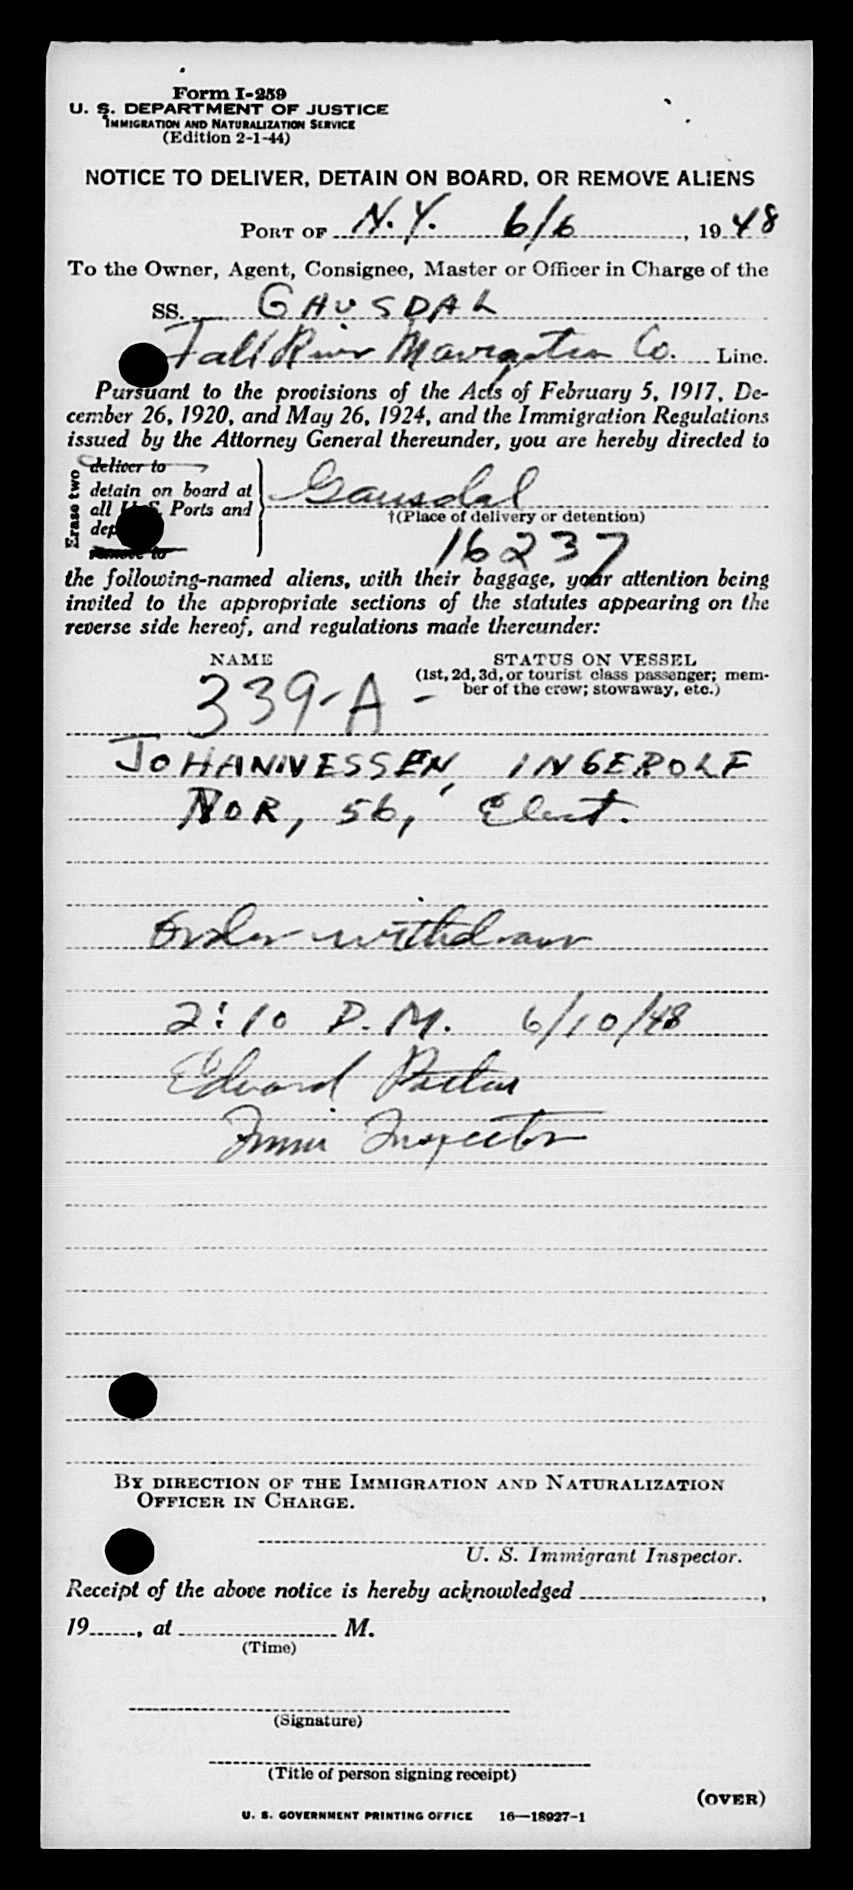 Form I-259
U. S. DEPARTMENT OF JUSTICE
IMMIGRATION AND NATURALIZATION SERVICE
(Edition 2-1-44)
NOTICE TO DELIVER, DETAIN ON BOARD, OR REMOVE ALIENS
PORT OF N.Y. 6/6, 1948
To the Owner, Agent, Consignee, Master or Officer in Charge of the
SS. GAUSDAL
Fall River Navigation Co. Line.
Pursuant to the provisions of the Acts of February 5, 1917, De-
cember 26, 1920, and May 26, 1924, and the Immigration Regulations
issued by the Attorney General thereunder, you are hereby directed to
Erase two
deliver to
detain on board at
all U.S. Ports and
dep
remove to
Gausdal
†(Place of delivery or detention)
16237
the following-named aliens, with their baggage, your attention being
invited to the appropriate sections of the statutes appearing on the
reverse side hereof, and regulations made thereunder:
NAME STATUS ON VESSEL
(1st, 2d, 3d, or tourist class passenger; mem-
ber of the crew; stowaway, etc.)
339-A -
JOHANNESSEN, INGEROLF
NOR, 56, Elect.
Order withdrawn
2:10 P.M. 6/10/48
Edward
Immi Inspector
BY DIRECTION OF THE IMMIGRATION AND NATURALIZATION
OFFICER IN CHARGE.
U. S. Immigrant Inspector.
Receipt of the above notice is hereby acknowledged ,
19 , at M.
(Time)
(Signature)
(Title of person signing receipt)
(OVER)
U. S. GOVERNMENT PRINTING OFFICE 16—18927-1